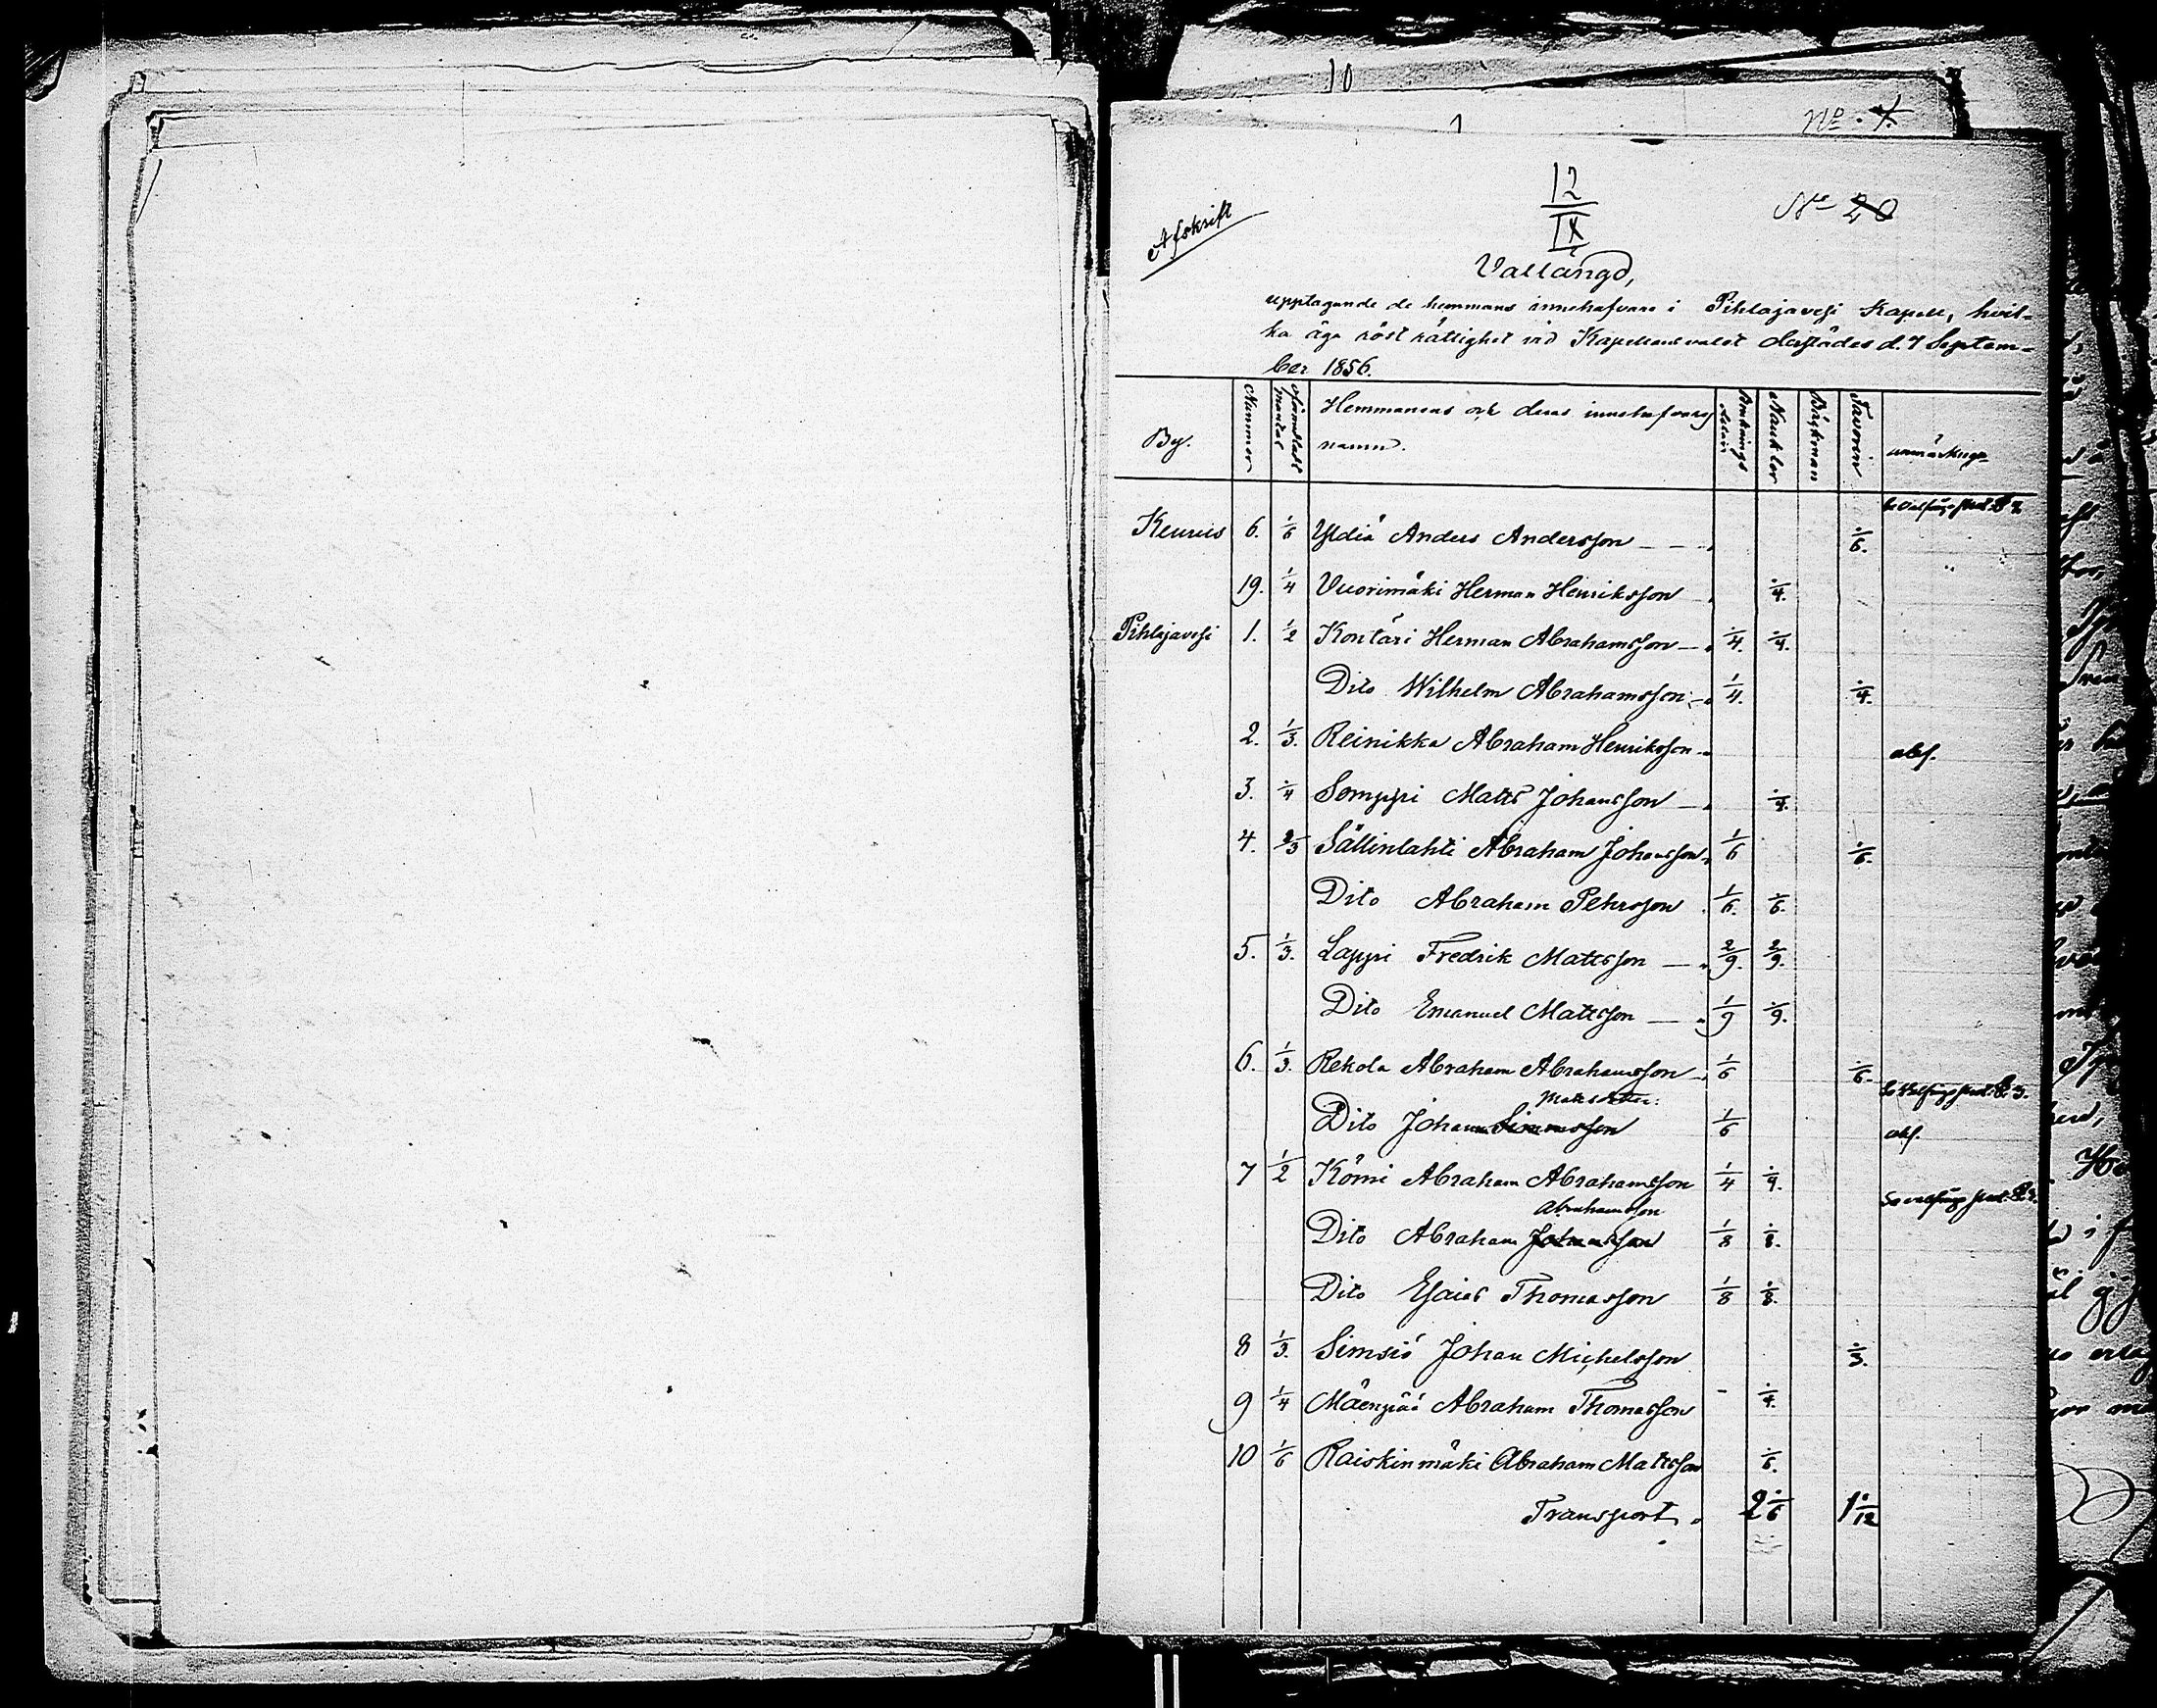 10
1
No. 7.
12
IX
No 20
Afskrift
Vallängd,
upptagande de hemmans innehafvare i Pihlajavesi Kapell, hvil-
ka äga röst rättighet vid Kapellans valet d. 7 Septem-
ber 1856.
By.
Nummer
mantal
Hemmanens och deras innehafvares
namn.
Naukler
Bärkman
Favoren
anmärkngr
Keurus 6. 1/6 Yldiä Anders Andersson 1/6.
19. 1/4 Vuorimäki Herman Henriksson 1/4.
Pihlajavesi 1. 1/2 Kontäri Herman Abrahamsson 1/4. 1/4.
Dito Wilhelm Abrahamsson 1/4. 1/4.
2. 1/3. Reinikka Abraham Henriksson abs.
3. 1/4 Somppi Matts Johansson 1/4.
4. 2/3 Sällinlahti Abraham Johansson 1/6 1/6.
Dito Abraham Pehrsson 1/6. 1/6.
5. 1/3. Lappi Fredrik Mattsson 2/9. 2/9.
Dito Emanuel Mattsson 1/9 1/9.
6. 1/3. Rekola Abraham Abrahamsson 1/6 1/6.
Dito Johan Simonsson 1/6 abs.
7 1/2 Kömi Abraham Abrahamsson 1/4 1/4.
Abrahamsson
Dito Abraham Johansson 1/8 1/8.
Dito Esaias Thomasson 1/8 1/8.
8 1/3. Simsiö Johan Michelsson 1/3.
9 1/4 Mäenpää Abraham Thomasson - 1/4.
10 1/6 Raiskinmäki Abraham Mattsson 1/6.
Transport. 2 1/6 1 1/12